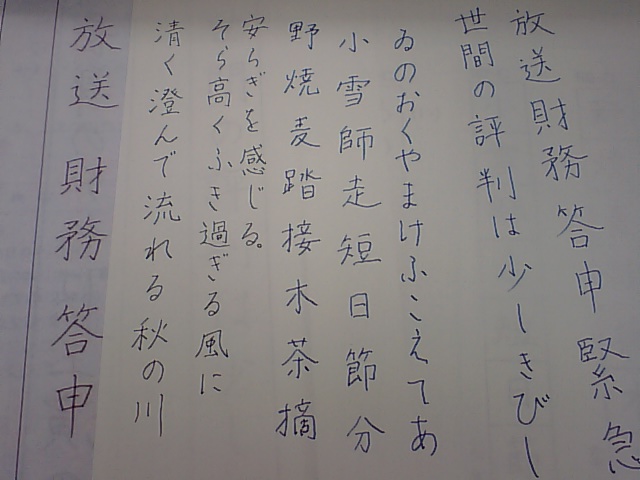 放送財務答申緊急
世間の評判は少しきびし
ゐのおくやまけふこえてあ
小雪師走短日節分
野焼麦踏接木茶摘
安らぎを感じる。
そら高くふき過ぎる風に
清く澄んで流れる秋の川
放送財務答申